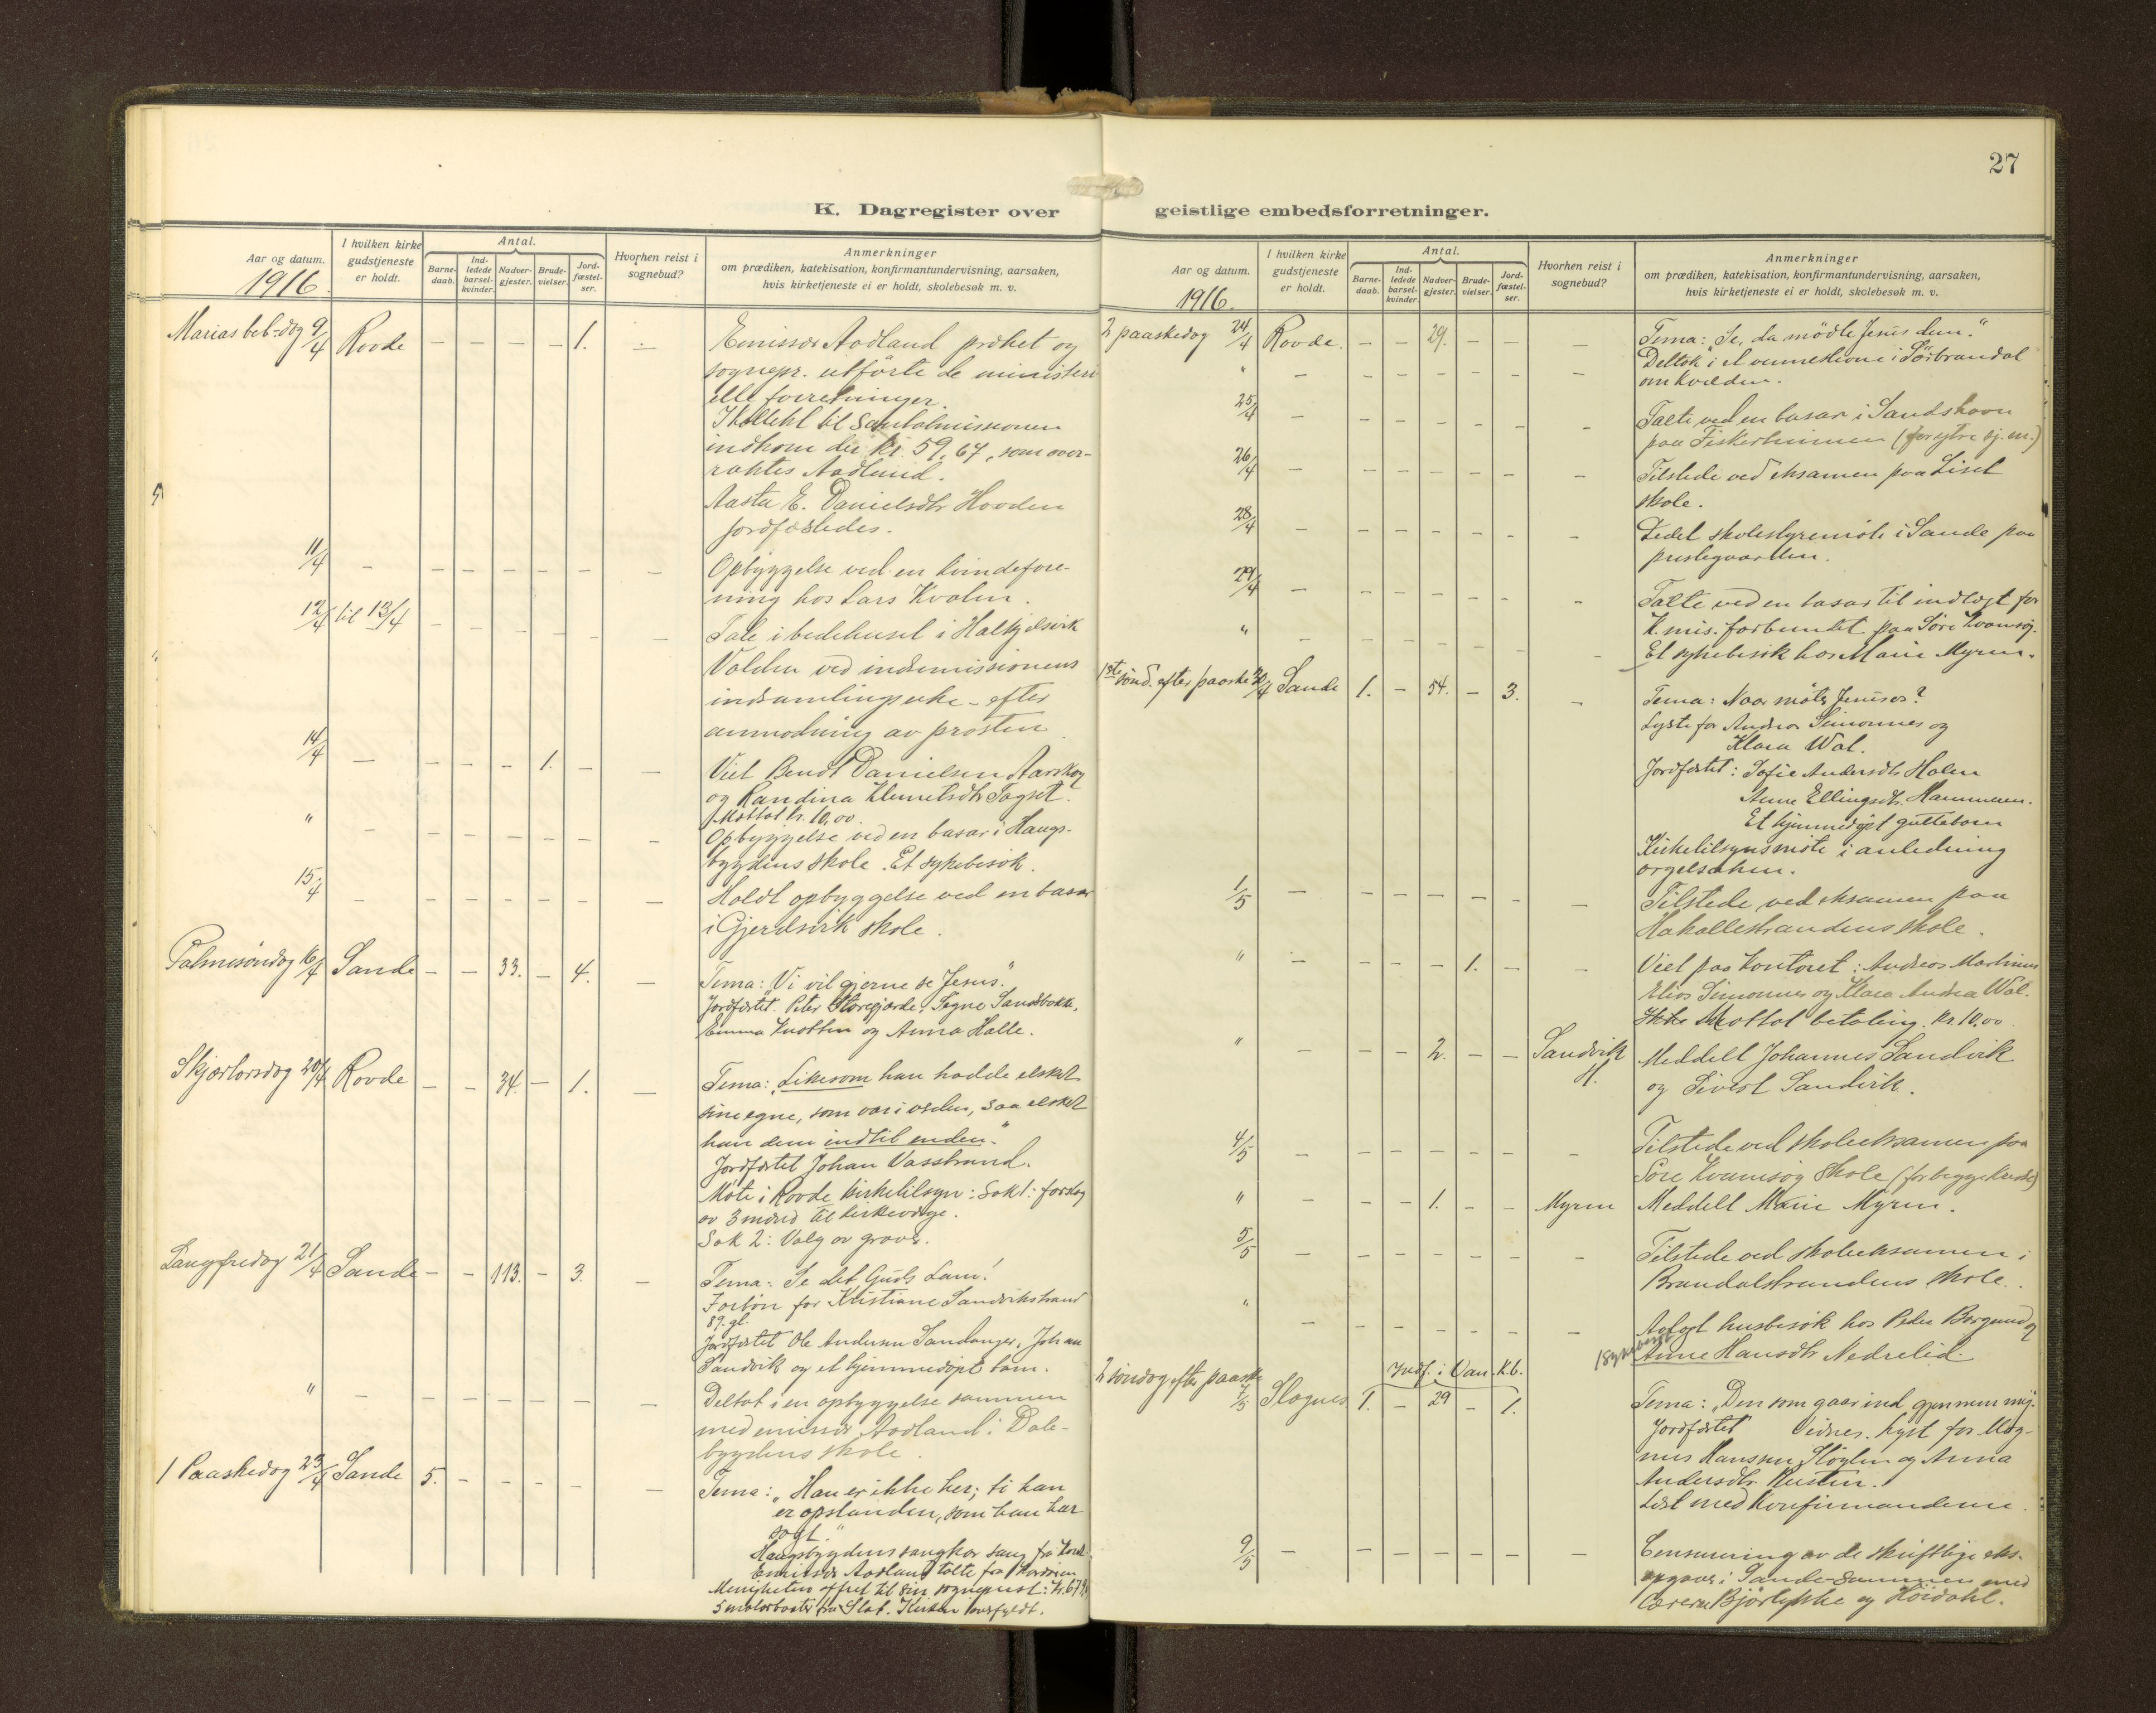 27
K. Dagregister over
geistlige embedsforretninger.
Aar og datum.
1916.
I hvilken kirke gudstjeneste er holdt.
Antal.
Barne-daab.
Ind-ledede barsel-kvinder.
Nadver-gjester.
Brude-vielser.
Jord-fæstel-ser.
Hvorhen reist i sognebud?
Anmerkninger
om prædiken, katekisation, konfirmantundervisning, aarsaken,
hvis kirketjeneste ei er holdt, skolebesøk m. v.
Marias beb-dag 9/4 Rovde — — — — 1. — Emissær Aadland præket og
sognepr. utførte de ministeri
elle forretninger.
I kollekt til Santalmissionen
indkom der kr. 59,67, som over-
raktes Aadland.
Aasta E. Danielsdtr Hovden
jordfæstedes.
11/4 — — — — — — — Opbyggelse ved en kvindefore-
ning hos Lars Kvalen.
12/4 til 13/4 — — — — — — Tale i bedehuset i Halkjelsvik
Volden ved indremissionens
indsamlingsuke - efter
anmodning av prosten.
14/4 — — — — 1. — — Viet Bendt Danielsen Aarskog
og Randina Klemetsdtr Sagset.
Mottat kr. 10,00.
" — — — — — — — Opbyggelse ved en basar i Haugs-
bygdens skole. Et sykebesøk.
15/4 — — — — — — — Holdt opbyggelse ved en basar
i Gjerdsvik skole.
Palmesøndag 16/4 Sande — — 33. — 4. — Tema: "Vi vil gjerne se Jesus".
Jordfæstet: Peter Storegjærde, Signe Sandsbakk,
Emma Knotten og Anna Halle.
Skjærtorsdag 20/4 Rovde — — 34. — 1. — Tema: "Likesom han hadde elsket
sine egne, som var i verden, saa elsket
han dem indtil enden."
Jordfæstet Johan Vasstrand.
Møte i Rovde kirketilsyn: Sak 1: forslag
av 3 mænd til kirkeverge.
Sak 2: Valg av graver.
Langfredag 21/4 Sande — — 113. — 3. — Tema: Se det Guds Lam!
Forbøn for Kristiane Sandvikstrand
89. gl.
Jordfæstet Ole Andersen Sandanger, Johan
Sandvik og et hjemmedøpt barn.
" — — — — — — — Deltat i en opbyggelse sammen
med emissær Aadland i Dale-
bygdens skole.
1 Paaskedag 23/4 Sande 5. — — — — — Tema: "Han er ikke her; ti han
er opstanden, som han har
sagt."
Haugsbygdens sangkor sang fra koret.
Emissær Aadland talte fra kordøren
Menigheten ofret til sin sogneprest: Kr. 67
5 motorbaater fra Stat. Kirken overfyldt.
Aar og datum.
1916.
I hvilken kirke gudstjeneste er holdt.
Antal.
Barne-daab.
Ind-ledede barsel-kvinder.
Nadver-gjester.
Brude-vielser.
Jord-fæstel-ser.
Hvorhen reist i sognebud?
Anmerkninger
om prædiken, katekisation, konfirmantundervisning, aarsaken,
hvis kirketjeneste ei er holdt, skolebesøk m. v.
2 paaskedag 24/4 Rovde. — — 29. — — — Tema: "Se, da mødte Jesus dem."
Deltok i et vennestevne i Sørbrandal
om kvelden.
25/4 — — — — — — — Talte ved en basar i Sandshavn
paa Fiskerheimen (for ytre sj. m.)
26/4 — — — — — — — Tilstede ved eksamen paa Liset
skole.
28/4 — — — — — — — Ledet skolestyremøte i Sande paa
prestegaarden.
29/4 — — — — — — — Talte ved en basar til indtægt for
K. mis. forbundet paa Søre Kvamsøy.
" — — — — — — — Et sykebesøk hos Marie Myren.
1ste sønd. efter paaske 30/4 Sande 1. — 54. — 3. — Tema: Naar møter Jesus os?
Lyste for Andreas Simonnes og
Klara Wal.
Jordfæstet: Sofie Andersdtr Holen
Anne Ellingsdtr. Hammeren.
Et hjemmedøpt guttebarn
Kirketilsynsmøte i anledning
orgelsaken.
1/5 — — — — — — — Tilstede ved eksamen paa
Hakallestrandens skole.
" — — — — 1. — — Viet paa kontoret: Andreas Martinus
Elias Simonnes og Klara Andrea Wal.
Mottat betaling. Kr. 10,00
" — — — 2. — — Sandvik H. Meddelt Johannes Sandvik
og Sivert Sandvik.
4/5 — — — — — — — Tilstede ved skoleeksamen paa
Søre Kvamsøy skole (for begge kredse)
" — — — 1. — — Myren Meddelt Marie Myren.
5/5 — — — — — — — Tilstede ved skoleeksamen i
Brandalstrandens skole.
" — — — — — — — Avlagt husbesøk hos Peder Borgund og
1 sykebesøk Anne Hansdtr Nedrelid.
2 søndag efter paaske 7/5 Slagnes 1. — 29 — 1. Indf. i Van. K.b. Tema: "Den som gaar ind gjennem mig.
Jordfæstet Vidnes. Lyst for Mag-
nus Hanssen Støylen og Anna
Andersdtr. Kusten.
Læst med konfirmanderne.
9/5 — — — — — — — Censurering av de skriftlige eks.
opgaver i Sande sammen med
lærerne Bjørlykke og Høidahl.